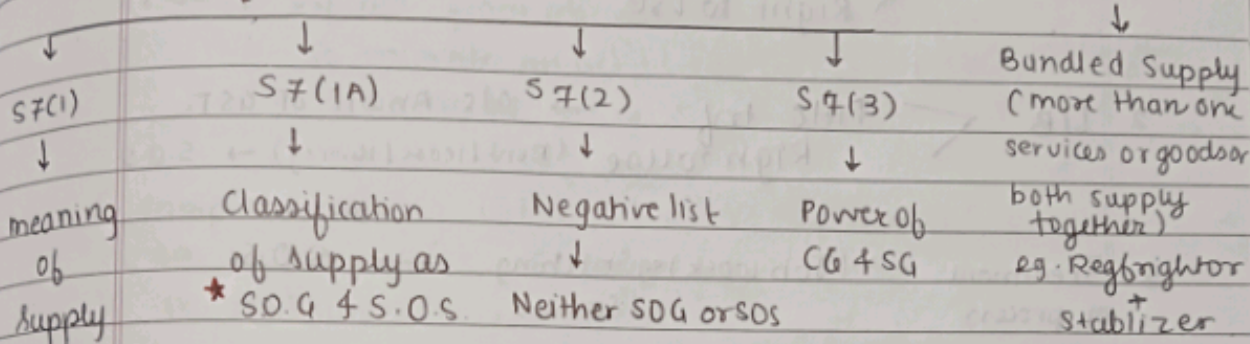 S7(1)
↓
meaning
of
supply
S7(1A)
↓
Classification
of supply as
* SO.G & S.O.S.
S7(2)
↓
Negative list
↓
Neither SOG or SOS
S7(3)
↓
Power of
CG & SG
Bundled Supply
(more than one
services or goods or
both supply
together)
eg. Regfrightor
+
Stablizer